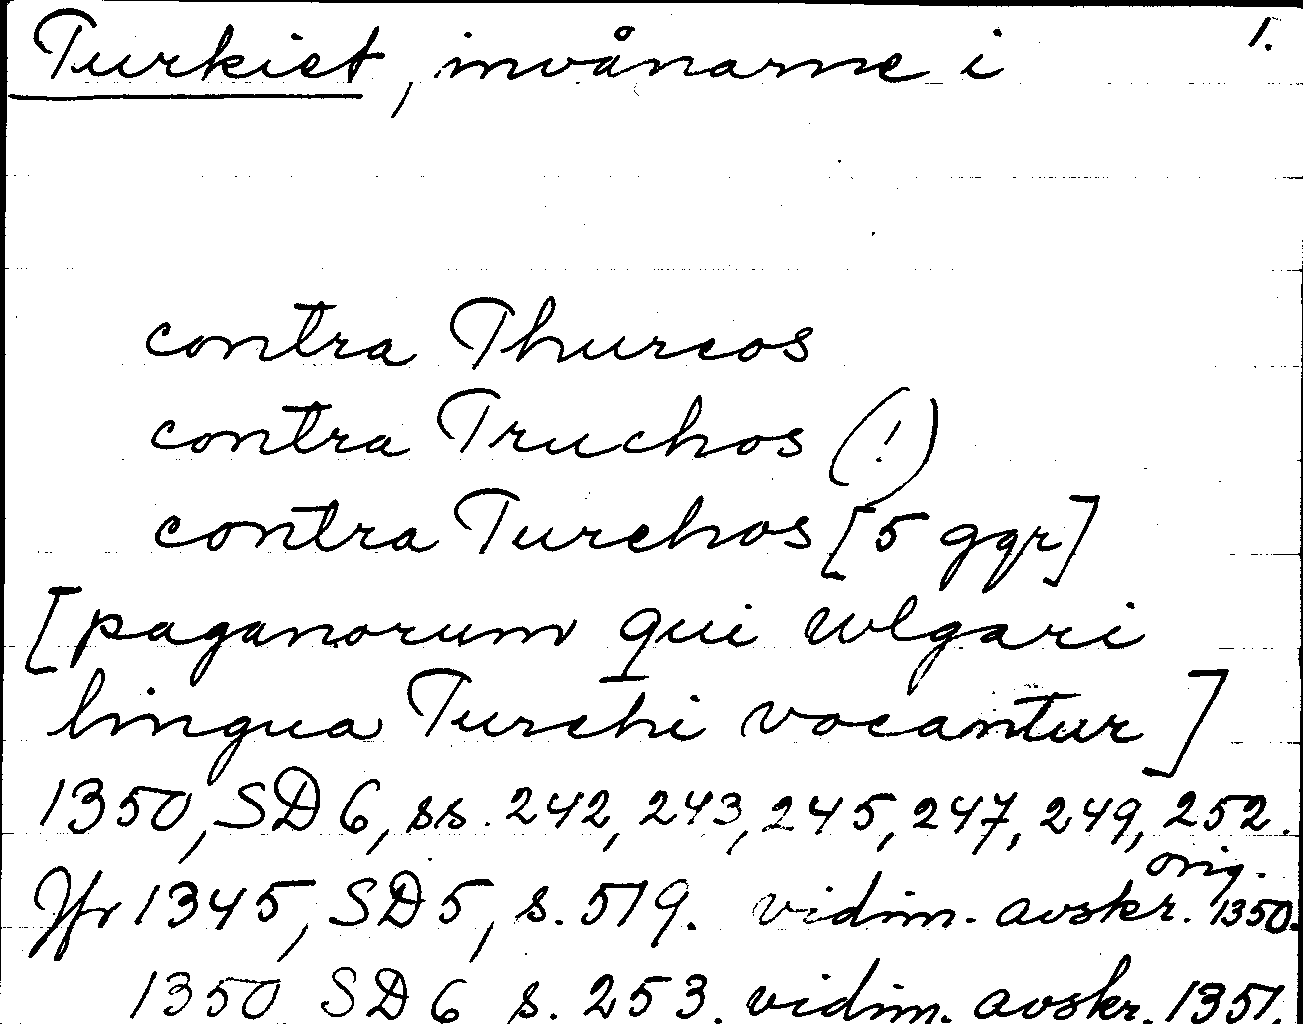 Turkiet, invånarne i 1.
contra Thurcos
contra Truchos (!)
contra Turchos [5 ggr]
[paganorum qui wlgari
lingua Turchi vocantur]
1350, SD 6, ss. 242, 243, 245, 247, 249, 252.
orig.
Jfr 1345, SD 5, s. 519. vidim. avskr. 1350.
1350 SD 6 s. 253. vidim. avskr. 1351.